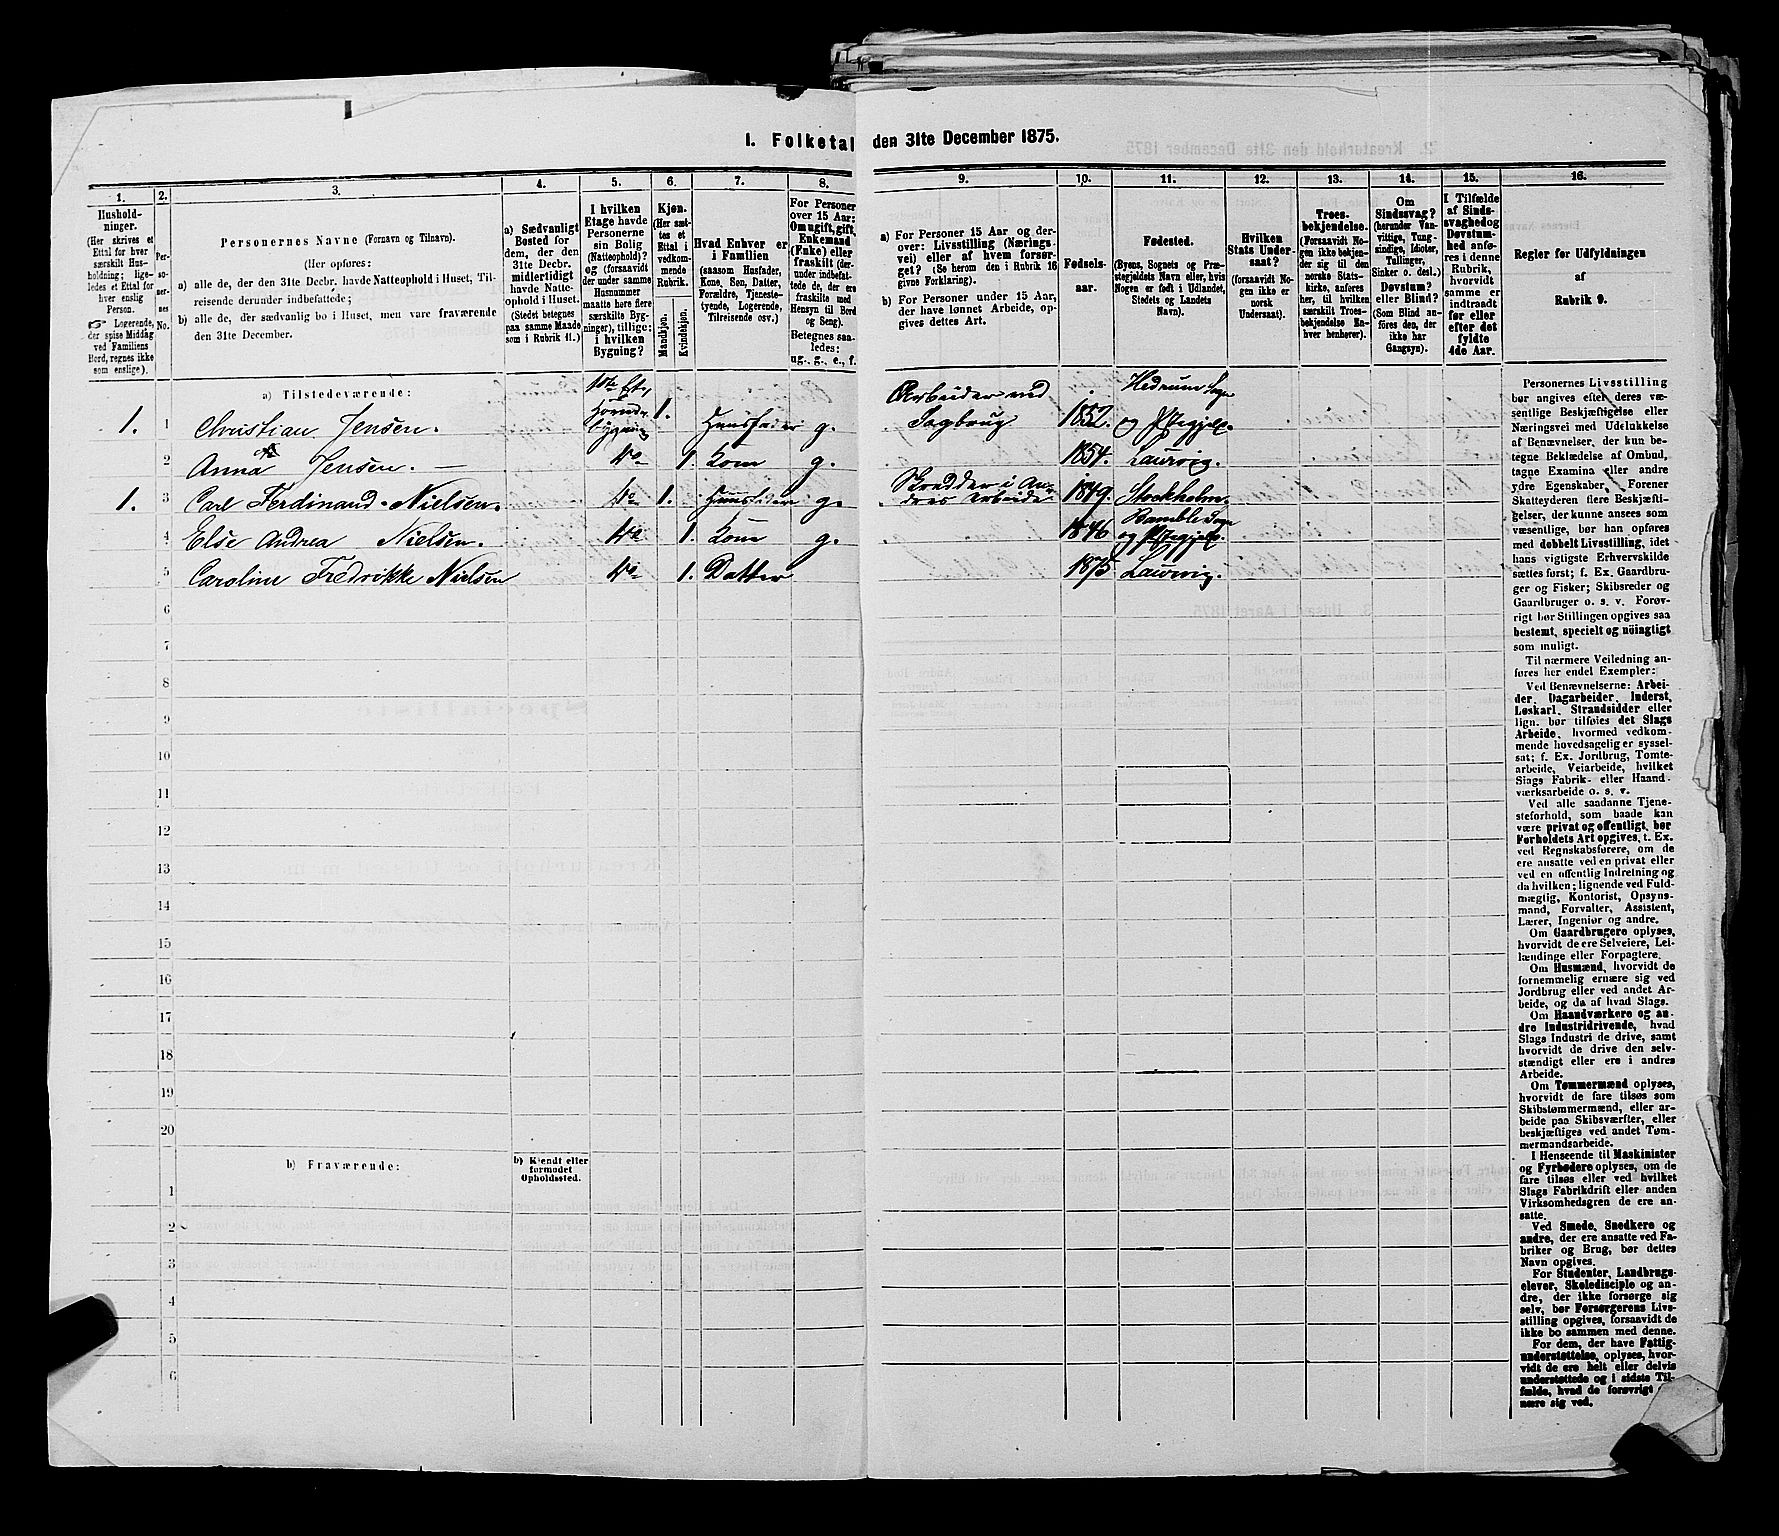 I. Folketal den 31te December 1875.
1. 2. 3. 4. 5. 6. 7. 8. 9. 10. 11. 12. 13. 14. 15. 16.
Hushold-
ninger.
(Her skrives et
Ettal for hver
særskilt Hus-
holdning; lige-
ledes et Ettal for
hver enslig
Person.
☞ Logerende,
der spise Middag
ved Familiens
Bord, regnes ikke
som enslige).
Per-
so-
ner-
nes
No.
Personernes Navne (Fornavn og Tilnavn).
(Her opføres:
a) alle de, der den 31te Decbr. havde Natteophold i Huset, Til-
reisende derunder indbefattede;
b) alle de, der sædvanlig bo i Huset, men vare fraværende
den 31te December.
a) Sædvanligt
Bosted for
dem, der den
31te Decbr.
midlertidigt
havde Natte-
ophold i Huset.
(Stedet betegnes
paa samme Maade
som i Rubrik 11.)
I hvilken
Etage havde
Personerne
sin Bolig
(Natteophold)?
og (forsaavidt
der under samme
Husnummer
maatte høre flere
særskilte Byg-
ninger), tillige:
i hvilken
Bygning?
Kjøn.
(Her sæt-
tes et
Ettal i
vedkom-
mende
Rubrik.
Mandkjøn.
Kvindekjøn.
Hvad Enhver er
i Familien
(saasom Husfader,
Kone, Søn, Datter,
Forældre, Tjeneste-
tyende, Logerende,
Tilreisende osv.)
For Personer
over 15 Aar:
Om ugift, gift,
Enkemand
(Enke) eller
fraskilt (der-
under indbefat-
tede de, der ere
fraskilte med
Hensyn til Bord
og Seng).
Betegnes saa-
ledes:
ug., g., e., f.
a) For Personer 15 Aar og der-
over: Livsstilling (Nærings-
vei) eller af hvem forsør-
get? (Se herom den i Rubrik 16
givne Forklaring).
b) For Personer under 15 Aar,
der have lønnet Arbeide, op-
gives dettes Art.
Fødsels-
aar.
Fødested.
(Byens, Sognets og Præ-
stegjeldets Navn eller, hvis
Nogen er født i Udlandet,
Stedets og Landets
Navn).
Hvilken
Stats Under-
saat?
(forsaavidt No-
gen ikke er
norsk
Undersaat).
Troes-
bekjendelse.
(Forsaavidt No-
gen ikke bekjen-
der sig til den
norske Stats-
kirke, anføres
her, til hvilken
særskilt Troes-
bekjendelse En-
hver henhører).
Om
Sindssvag?
(herunder Van-
vittige, Tung-
sindige, Idioter,
Tullinger,
Sinker o. desl.)
Døvstum?
eller Blind?
(Som Blind an-
føres den, der
ikke har
Gangsyn).
I Tilfælde
af Sinds-
svaghed og
Døvstum-
hed anfø-
res i denne
Rubrik,
hvorvidt
samme er
indtraadt
før eller
efter det
fyldte
4de Aar.
Regler for Udfyldningen
af
Rubrik 9.
a) Tilstedeværende:
1. 1 Christian Jensen. 1ste Et. Hoved-bygning 1. Huusfader g. Arbeider ved Sagbrug 1852. Hedrum Sogn og Pstegjeld.
2 Anna Jensen. — do 1. Kone g. 1854. Laurvig.
1. 3 Carl Ferdinand Nielsen. do 1. Huusfader g. Skrædder i An-dres Arbeide 1849. Stockholm.
4 Else Andrea Nielsen. do 1. Kone g. 1846 Bamble Sogn og Pstegjeld.
5 Caroline Fredrikke Nielsen do 1. Datter 1875 Laurvig.
6
7
8
9
10
11
12
13
14
15
16
17
18
19
20
b) Fraværende:
b) Kjendt eller
formodet
Opholdssted.
1
2
3
4
5
6
Personernes Livsstilling
bør angives efter deres væ-
sentlige Beskjæftigelse eller
Næringsvei med Udelukkelse
af Benævnelser, der kun be-
tegne Beklædelse af Ombud,
tagne Examina eller andre
ydre Egenskaber. Forener
Skatteyderen flere Beskjæfti-
gelser, der kunne ansees som
væsentlige, bør han opføres
med dobbelt Livsstilling, idet
hans vigtigste Erhvervskilde
sættes først; f. Ex. Gaardbru-
ger og Fisker; Skibsreder og
Gaardbruger o. s. v. Forøv-
rigt bør Stillingen opgives saa
bestemt, specielt og nöiagtigt
som muligt.
Til nærmere Veiledning an-
føres her endel Exempler:
Ved Benævnelserne: Arbei-
der, Dagarbeider, Inderst,
Løskarl, Strandsidder eller
lign. bør tilføies det Slags
Arbeide, hvormed vedkom-
mende hovedsagelig er syssel-
sat; f. Ex. Jordbrug, Tomte-
arbeide, Veiarbeide, hvilket
Slags Fabrik- eller Haand-
værksarbeide o. s. v.
Ved alle saadanne Tjene-
steforhold, som baade kan
være privat og offentligt, bør
Forholdets Art opgives, t. Ex.
ved Regnskabsførere, om de
ere ansatte ved en privat eller
ved en offentlig Indretning og
da hvilken; lignende ved Fuld-
mægtig, Kontorist, Opsyns-
mand, Forvalter, Assistent,
Lærer, Ingeniør og andre.
Om Gaardbrugere oplyses,
hvorvidt de ere Selveiere, Lei-
lændinge eller Forpagtere.
Om Husmænd, hvorvidt de
fornemmelig ernære sig ved
Jordbrug eller ved andet Ar-
beide, og da af hvad Slags.
Om Haandværkere og an-
dre Industridrivende, hvad
Slags Industri de drive, samt
hvorvidt de drive den selv-
stændigt eller ere i andres
Arbeide.
Om Tømmermænd oplyses,
hvorvidt de fare tilsøs som
Skibstømmermænd, eller ar-
beide paa Skibsværfter, eller
beskjæftiges ved andet Tøm-
mermandsarbeide.
I Henseende til Maskinister
og Fyrbødere oplyses, om de
fare tilsøs eller ved hvilket
Slags Fabrikdrift eller anden
Virksomhedsgren de ere an-
satte.
Ved Smede, Snedkere og
andre, der ere ansatte ved Fa-
briker og Brug, bør dettes
Navn opgives.
For Studenter, Landbrugs-
elever, Skoledisciple og an-
dre, der ikke forsørge sig
selv, bør Forsørgerens Livs-
stilling opgives, forsaavidt de
ikke bo sammen med denne.
For dem, der have Fattig-
understøttelse, oplyses, hvor-
vidt de ere helt eller delvis
understøttede og i sidste Til-
fælde, hvad de forøvrigt
nære sig ved.